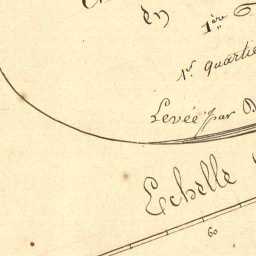 en
1ère
1er quartie
Levée par
Echelle
60